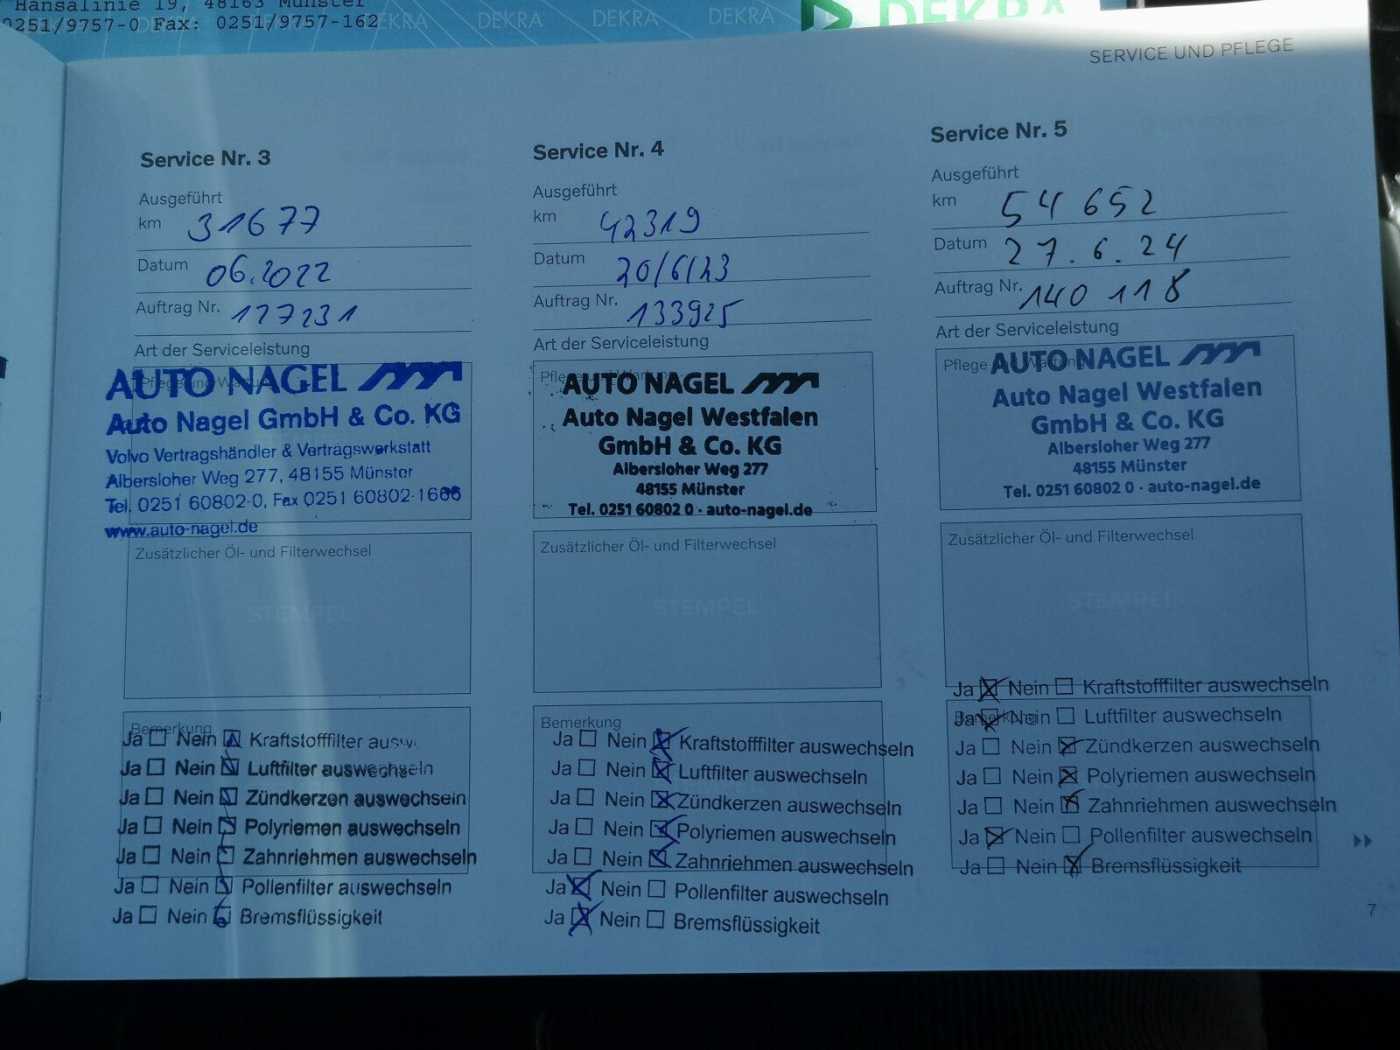 Hansalinie 19, 48163 Münster
0251/9757-0 Fax: 0251/9757-162
DEKRA DEKRA DEKRA DEKRA
DEKRA
SERVICE UND PFLEGE
Service Nr. 3
Ausgeführt
km 31677
Datum 06.2022
Auftrag Nr. 127231
Art der Serviceleistung
AUTO NAGEL
Auto Nagel GmbH & Co. KG
Volvo Vertragshändler & Vertragswerkstatt
Albersloher Weg 277, 48155 Münster
Tel. 0251 60802-0, Fax 0251 60802-1666
www.auto-nagel.de
Zusätzlicher Öl- und Filterwechsel
STEMPEL
Bemerkung
Ja Nein Kraftstofffilter ausw
Ja Nein Luftfilter auswechseln
Ja Nein Zündkerzen auswechseln
Ja Nein Polyriemen auswechseln
Ja Nein Zahnriehmen auswechseln
Ja Nein Pollenfilter auswechseln
Ja Nein Bremsflüssigkeit
Service Nr. 4
Ausgeführt
km 42319
Datum 20/6/23
Auftrag Nr. 133925
Art der Serviceleistung
AUTO NAGEL
Auto Nagel Westfalen
GmbH & Co. KG
Albersloher Weg 277
48155 Münster
Tel. 0251 60802 0 · auto-nagel.de
Zusätzlicher Öl- und Filterwechsel
STEMPEL
Bemerkung
Ja Nein Kraftstofffilter auswechseln
Ja Nein Luftfilter auswechseln
Ja Nein Zündkerzen auswechseln
Ja Nein Polyriemen auswechseln
Ja Nein Zahnriehmen auswechseln
Ja Nein Pollenfilter auswechseln
Ja Nein Bremsflüssigkeit
Service Nr. 5
Ausgeführt
km 54 652
Datum 27.6.24
Auftrag Nr. 140 118
Art der Serviceleistung
Pflege
AUTO NAGEL
Auto Nagel Westfalen
GmbH & Co. KG
Albersloher Weg 277
48155 Münster
Tel. 0251 60802 0 · auto-nagel.de
Zusätzlicher Öl- und Filterwechsel
STEMPEL
Ja Nein Kraftstofffilter auswechseln
Ja Nein Luftfilter auswechseln
Ja Nein Zündkerzen auswechseln
Ja Nein Polyriemen auswechseln
Ja Nein Zahnriehmen auswechseln
Ja Nein Pollenfilter auswechseln
Ja Nein Bremsflüssigkeit
7